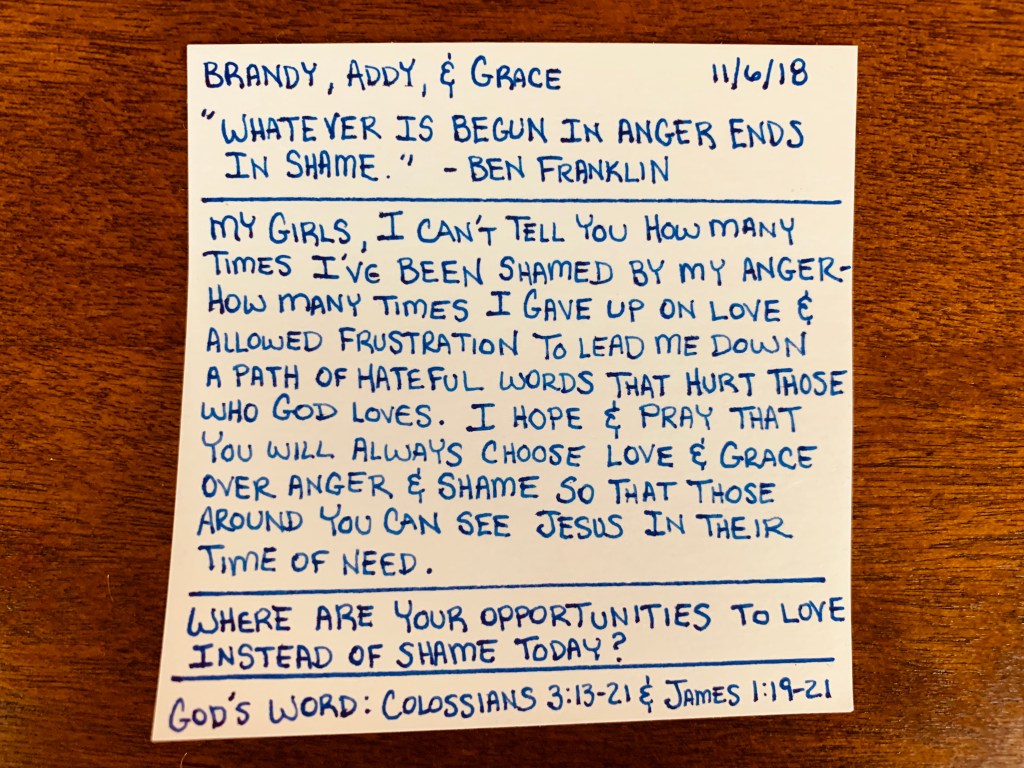 BRANDY, ADDY, & GRACE 11/6/18
"WHATEVER IS BEGUN IN ANGER ENDS
IN SHAME." - BEN FRANKLIN
MY GIRLS, I CAN'T TELL YOU HOW MANY
TIMES I'VE BEEN SHAMED BY MY ANGER-
HOW MANY TIMES I GAVE UP ON LOVE &
ALLOWED FRUSTRATION TO LEAD ME DOWN
A PATH OF HATEFUL WORDS THAT HURT THOSE
WHO GOD LOVES. I HOPE & PRAY THAT
YOU WILL ALWAYS CHOOSE LOVE & GRACE
OVER ANGER & SHAME SO THAT THOSE
AROUND YOU CAN SEE JESUS IN THEIR
TIME OF NEED.
WHERE ARE YOUR OPPORTUNITIES TO LOVE
INSTEAD OF SHAME TODAY?
GOD'S WORD: COLOSSIANS 3:13-21 & JAMES 1:19-21